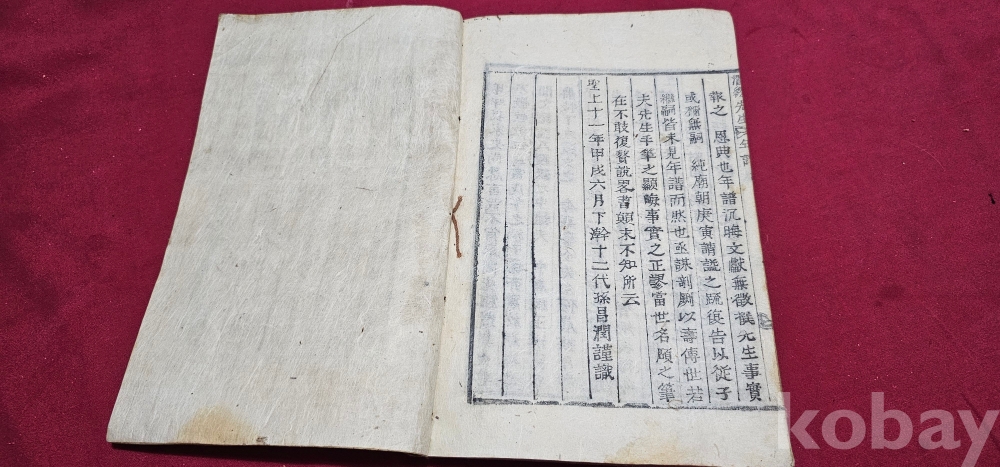 報之 恩典也年譜沉晦文獻無徵僎先生事實
或稱無嗣 純廟朝庚寅請諡之疏復告以從子
繼嗣皆未見年譜而然也亟謀剞劂以壽傳世若
夫先生手筆之顯晦事實之正謬當世名碩之筆
在不敢復贅說畧書顚末不知所云
聖上十一年甲戌六月下澣十二代孫昌潤謹識
先生年譜
kobay